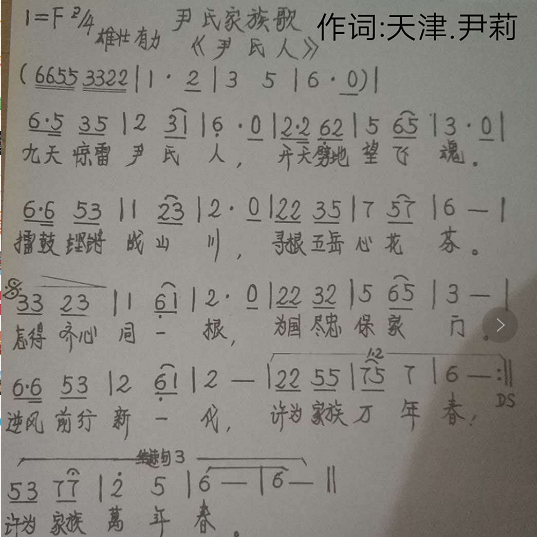 1=F 2/4 雄壮有力 尹氏家族歌 作词:天津.尹莉
《尹氏人》
(6655 3322 | 1 · 2 | 3 5 | 6 · 0) |
6·5 35 | 2 31 | 6 · 0 | 2·2 62 | 5 65 | 3 · 0 |
九天惊雷尹氏人，开天劈地望飞魂。
6·6 53 | 1 23 | 2 · 0 | 22 35 | 7 57 | 6 — |
擂鼓铿锵战山川，寻根五岳心花芬。
33 23 | 1 61 | 2 · 0 | 22 32 | 5 65 | 3 — |
齐心同一根，为国尽忠保家门。
1.2
6·6 53 | 2 61 | 2 — | 22 55 | 75 7 | 6 — :||
逆风前行新一代，许为家族万年春， DS
结束句3
53 77 | 2 5 | 6 — | 6 — ||
许为家族萬年春。